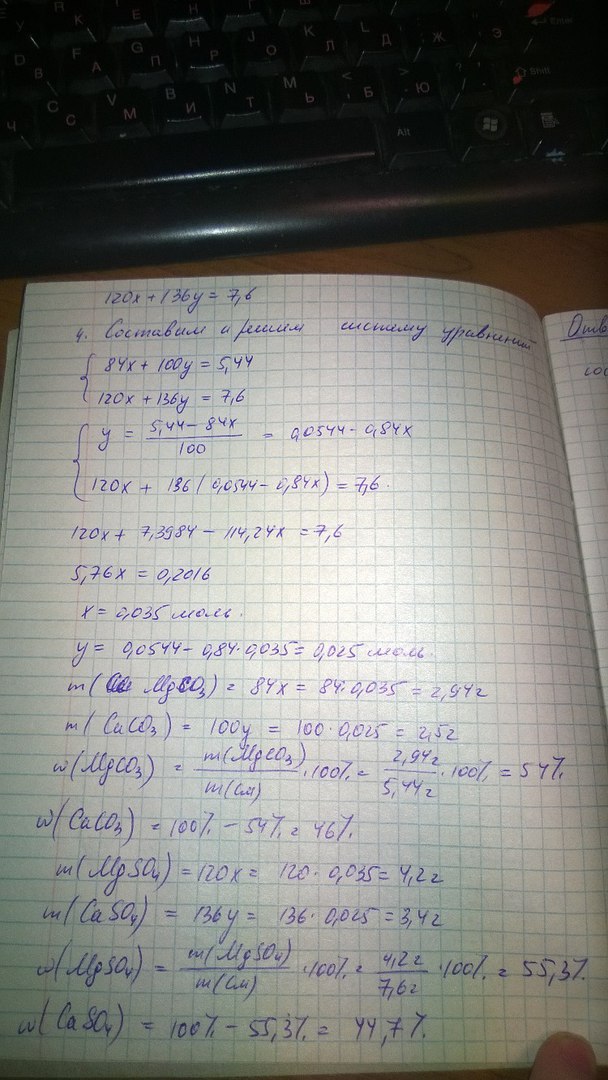 У К Е Н Г Ш
Enter
D В F А G П H Р J О K Л L Д Ж Э
Shift
Ч С V М B И N Т M Ь < Б > Ю
Alt
120x + 136y = 7,6
4. Составим и решим систему уравнений
84x + 100y = 5,44
120x + 136y = 7,6
y = 5,44 - 84x / 100 = 0,0544 - 0,84x
120x + 136 (0,0544 - 0,84x) = 7,6.
120x + 7,3984 - 114,24x = 7,6
5,76x = 0,2016
x = 0,035 моль.
y = 0,0544 - 0,84·0,035 = 0,025 моль.
m( MgCO₃) = 84x = 84·0,035 = 2,94г
m(CaCO₃) = 100y = 100·0,025 = 2,5г
w(MgCO₃) = m(MgCO₃) / m(см) ·100% = 2,94г / 5,44г ·100% = 54%
w(CaCO₃) = 100% - 54% = 46%.
m(MgSO₄) = 120x = 120·0,035 = 4,2г
m(CaSO₄) = 136y = 136·0,025 = 3,4г
w(MgSO₄) = m(MgSO₄) / m(см) ·100% = 4,2г / 7,6г ·100% = 55,3%.
w(CaSO₄) = 100% - 55,3% = 44,7%.
Отв
сос